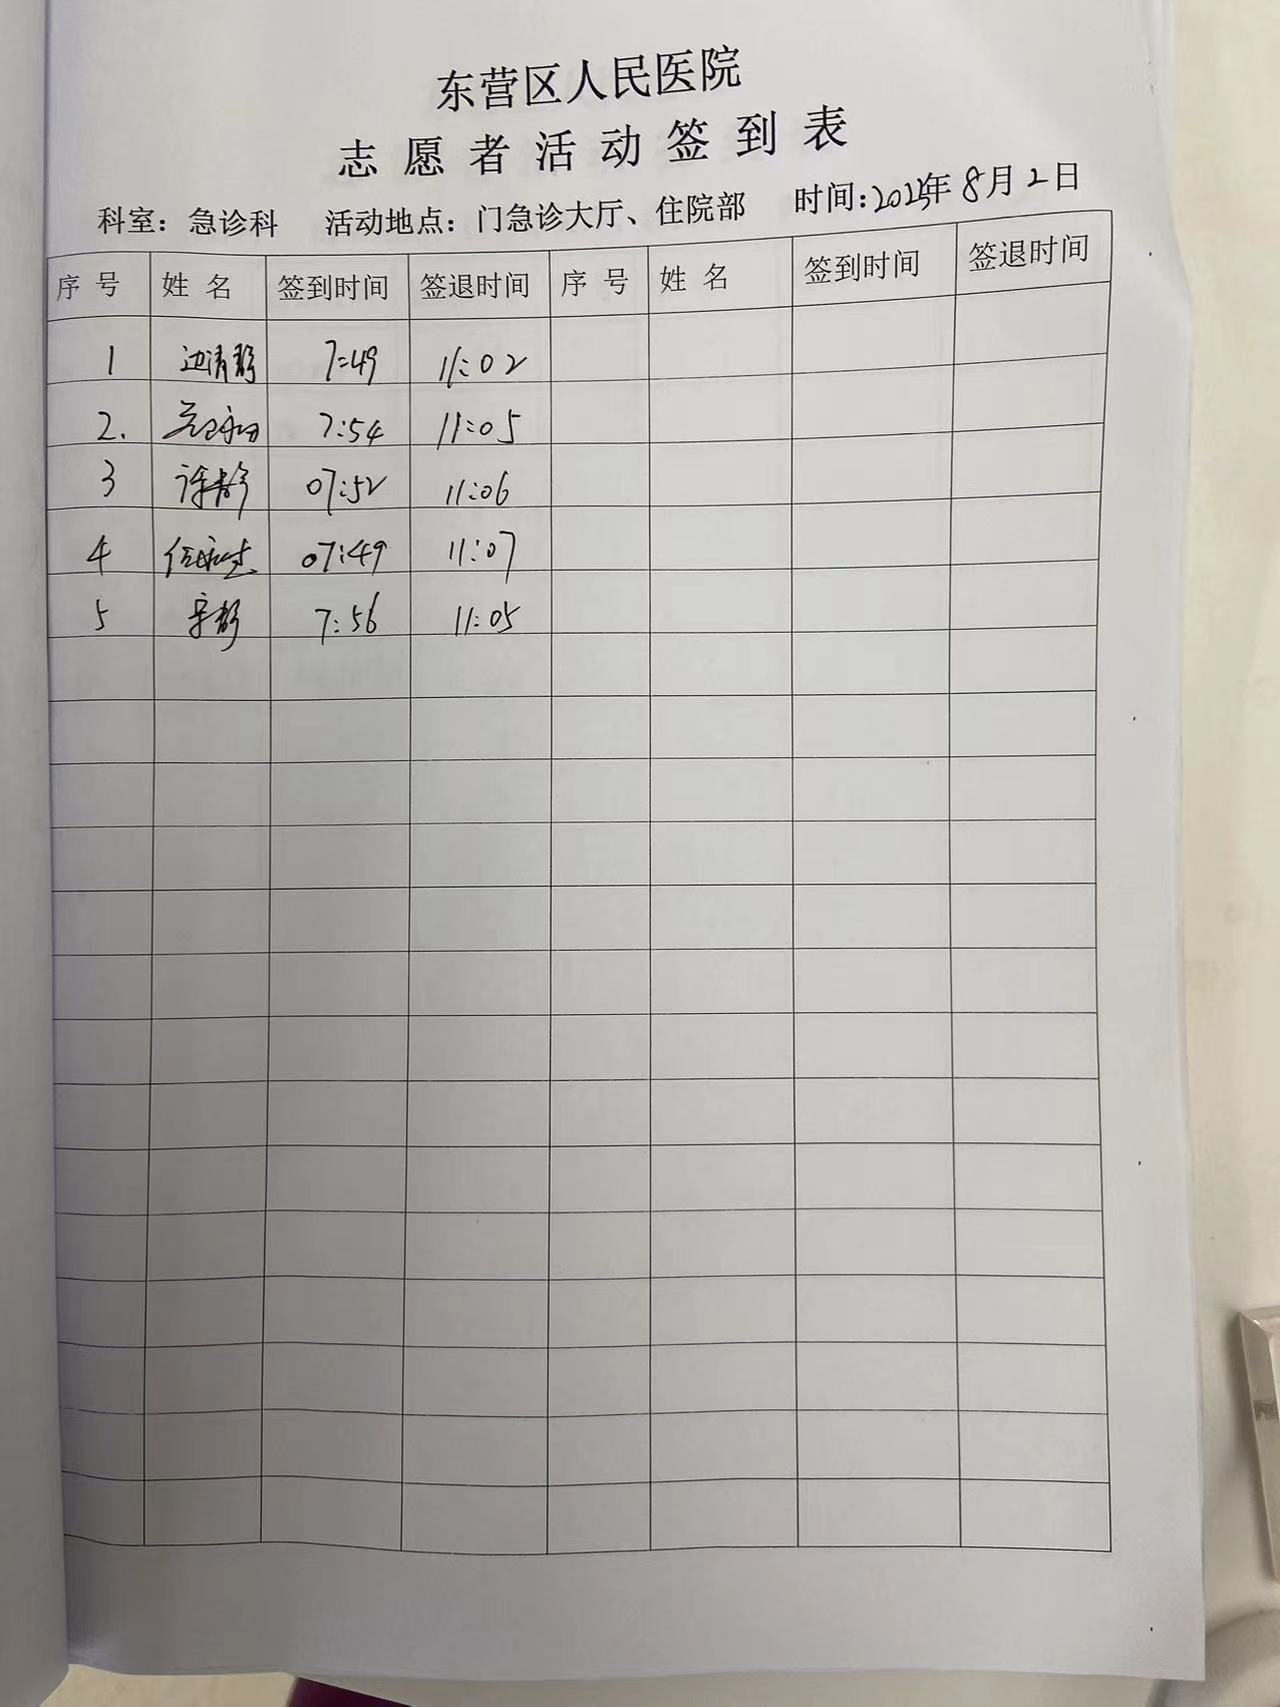 东营区人民医院
志愿者活动签到表
科室：急诊科 活动地点：门急诊大厅、住院部 时间：2024年8月2日
序号 姓名 签到时间 签退时间 序号 姓名 签到时间 签退时间
1 边清静 7:49 11:02
2. 7:54 11:05
3 徐静 07:52 11:06
4 任永杰 07:49 11:07
5 宋静 7:56 11:05